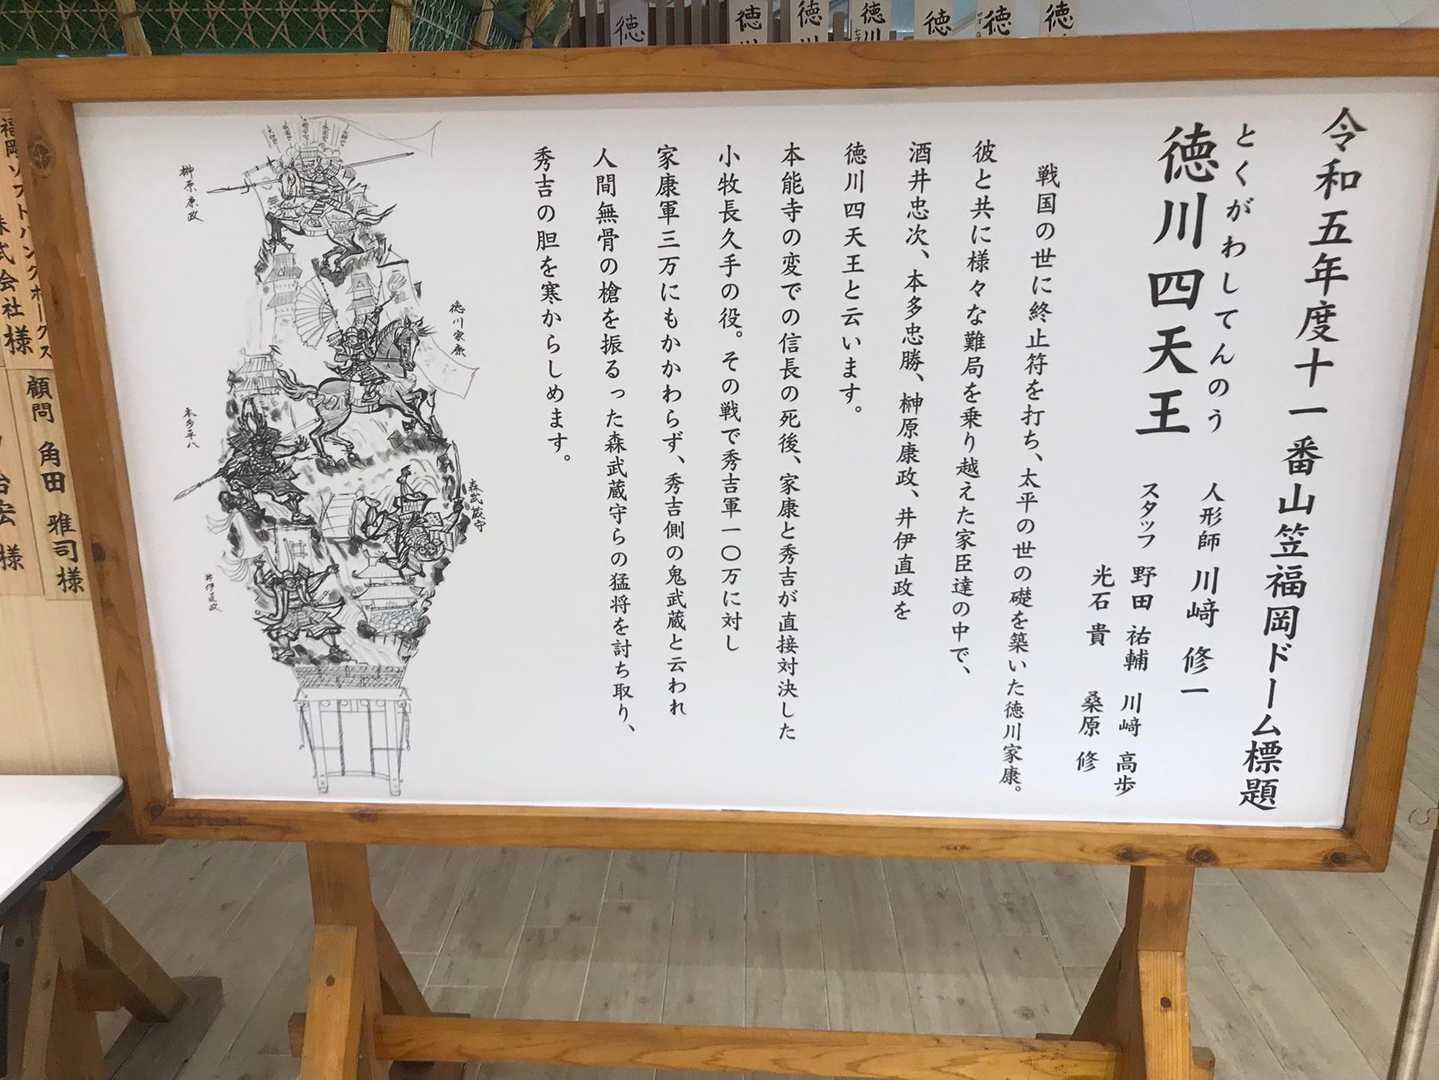 令和五年度十一番山笠福岡ドーム標題
とくがわしてんのう
徳川四天王
人形師 川﨑 修一
スタッフ 野田 祐輔 川﨑 高歩
光石 貴 桑原 修
戦国の世に終止符を打ち、太平の世の礎を築いた徳川家康。
彼と共に様々な難局を乗り越えた家臣達の中で、
酒井忠次、本多忠勝、榊原康政、井伊直政を
徳川四天王と云います。
本能寺の変での信長の死後、家康と秀吉が直接対決した
小牧長久手の役。その戦で秀吉軍一〇万に対し
家康軍三万にもかかわらず、秀吉側の鬼武蔵と云われ
人間無骨の槍を振るった森武蔵守らの猛将を討ち取り、
秀吉の胆を寒からしめます。
榊原康政
徳川家康
本多平八
森武蔵守
井伊直政
福岡ソフトバンクホークス
株式会社 様
顧問 角田 雅司 様
様
徳
徳川
徳川
徳川
徳
徳
徳